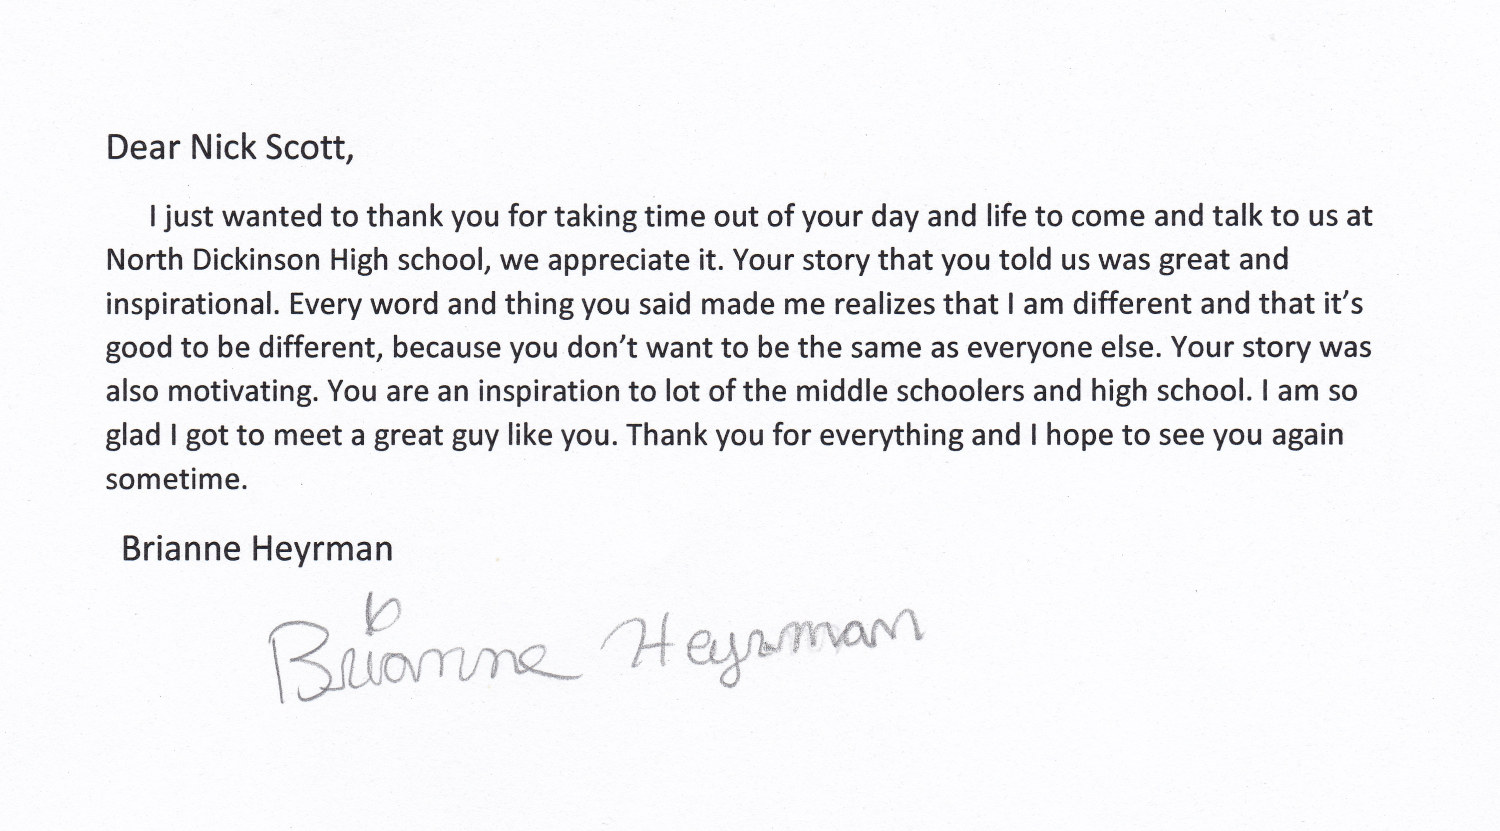 Dear Nick Scott,
I just wanted to thank you for taking time out of your day and life to come and talk to us at
North Dickinson High school, we appreciate it. Your story that you told us was great and
inspirational. Every word and thing you said made me realizes that I am different and that it's
good to be different, because you don't want to be the same as everyone else. Your story was
also motivating. You are an inspiration to lot of the middle schoolers and high school. I am so
glad I got to meet a great guy like you. Thank you for everything and I hope to see you again
sometime.
Brianne Heyrman
Brianne Heyrman